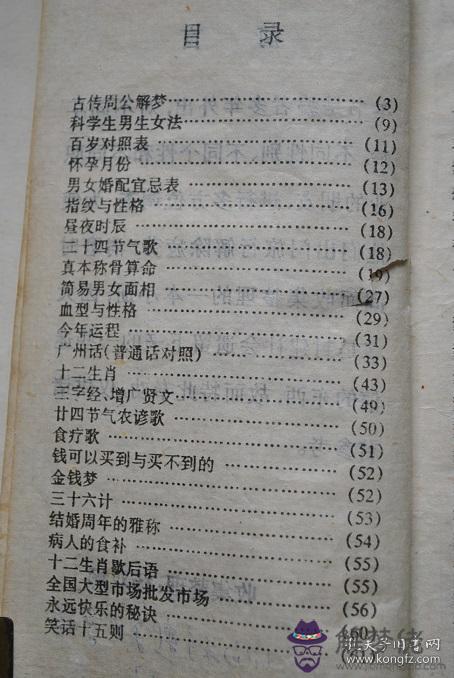 目 录
古传周公解梦 (3)
科学生男生女法 (9)
百岁对照表 (11)
怀孕月份 (12)
男女婚配宜忌表 (13)
指纹与性格 (16)
昼夜时辰 (18)
二十四节气歌 (18)
真本称骨算命 (19)
简易男女面相 (27)
血型与性格 (29)
今年运程 (31)
广州话(普通话对照) (33)
十二生肖 (43)
三字经、增广贤文 (49)
廿四节气农谚歌 (50)
食疗歌 (51)
钱可以买到与买不到的 (52)
金钱梦 (52)
三十六计 (53)
结婚周年的雅称 (54)
病人的食补 (55)
十二生肖歇后语 (55)
全国大型市场批发市场 (56)
永远快乐的秘诀 (60)
笑话十五则
解梦佬
孔夫子旧书网
www.kongfz.com